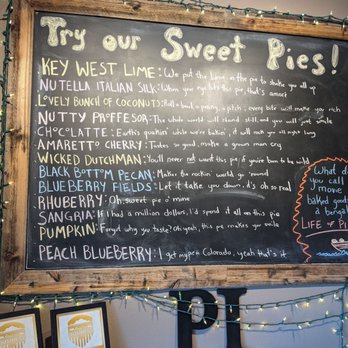 Try our Sweet Pies!
KEY WEST LIME: We put the lime in the pie to shake you all up
NUTELLA ITALIAN SILK: When your eye likes this pie, that's amore
LOVELY BUNCH OF COCONUTS: Roll a bowl a penny, a pitch; every bite will make you rich
NUTTY PROFFESOR: The whole world will stand still, and you will just smile
CHOCLATTE: Earth's quakin' while we're bakin', it will rock you all night long
AMARETTO CHERRY: Tastes so good, make a grown man cry
WICKED DUTCHMAN: You'll never not want this pie, if you're born to be wild
BLACK BOTTOM PECAN: Makes the rockin' world go 'round
BLUEBERRY FIELDS: Let it take you down, it's oh so real
RHUBERRY: Oh, sweet pie o' mine
SANGRIA: If I had a million dollars, I'd spend it all on this pie
PUMPKIN: Forget why you taste? Oh yeah, this pie makes you smile
PEACH BLUEBERRY: I get my pie Colorado, yeah that's it
What do
you call
move
baked goods
a benga
LIFE of PI
PI